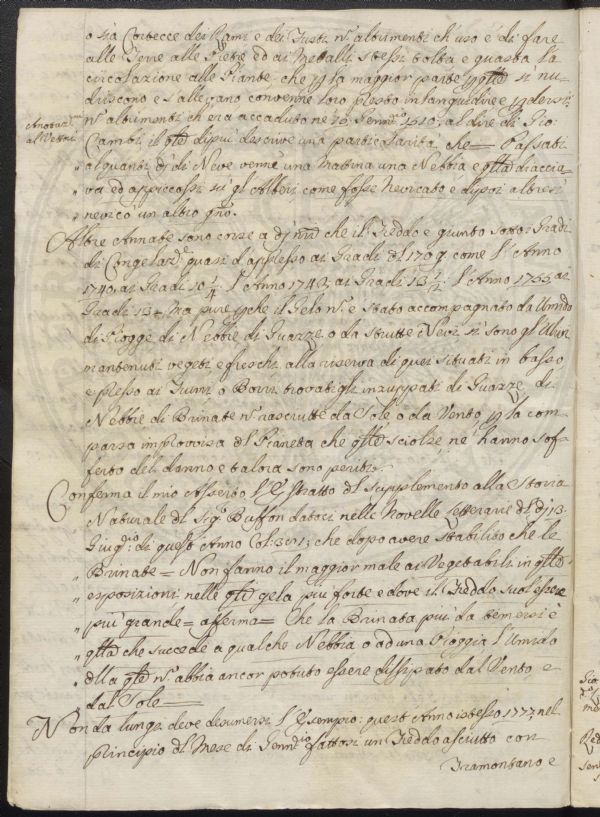 o sia Cortecce dei Rami e dei Fusti n.° altrimenti ch'uso è di fare
alle Terre alle Pietre ed ai Metalli stessi tolta e guasta la
circolazione alle Piante che p la maggior parte p qte si nu-
driscono e s'allegano convenne loro presto infanguidire e perdersi:
n.° altrimenti ch'era accaduto ne 16 Genn.° 1510; al dire di Gio:
Annotazni al Vettri
Cambi, il qte dipiù descrive una partic rarità, che = Passati
" alquanti dj di Neve venne una mattina una Nebbia e qtta diaccia-
" va ed appiccossi su gl'Alberi come fosse Nevicato e dipoi altresì
" nevicò un altro gno.
Altre Annate sono corse a dj nri che il Freddo e giunto sotto i Gradi
di Congelaz.e quasi d'appresso ai Gradi dl 1709 come l'Anno
1740, ai Gradi 10 1/4 l'Anno 1742, ai Gradi 13 1/2: l'Anno 1755, ai
Gradi 13 Ma pure pche il Gelo n.° è stato accompagnato da Umido
di Piogge di Nebbie di Guazze o da strutte Nevi si sono gl'Ulivi
mantenuti vegeti e freschi alla riserva di quei situati in basso
e presso ai Fiumi o Borri trovatigli inzuppati di Guazze, di
Nebbie di Brinate n.° rasciutte da Sole o da Vento, p la com-
parsa improvvisa dl Pianeta che qtte sciolse, ne hanno sof-
ferto del danno e talora sono periti.
Conferma il mio Asserto l'Estratto dl supplemento alla Storia
Naturale dl Sig.r Buffon datoci nelle Novelle Letterarie dl dj 13
Giug.° di quest'Anno Col: 381; che dopo avere stabilito che le
" Brinate = Non fanno il maggior male ai Vegetabili in qtte
" esposizioni nelle qti gela più forte e dove il Freddo suol essere
" più grande = afferma = Che la Brinata più da temersi è
" qtta che succede a qualche Nebbia o ad una Pioggia l'Umido
" dlla qte n.° abbia ancor potuto essere dissipato dal Vento e
" dal Sole =
Non da lungi deve desumersi l'Esempio: quest'Anno istesso 1777, nel
principio dl Mese di Genn.° fattosi un Freddo asciutto con
Tramontano e